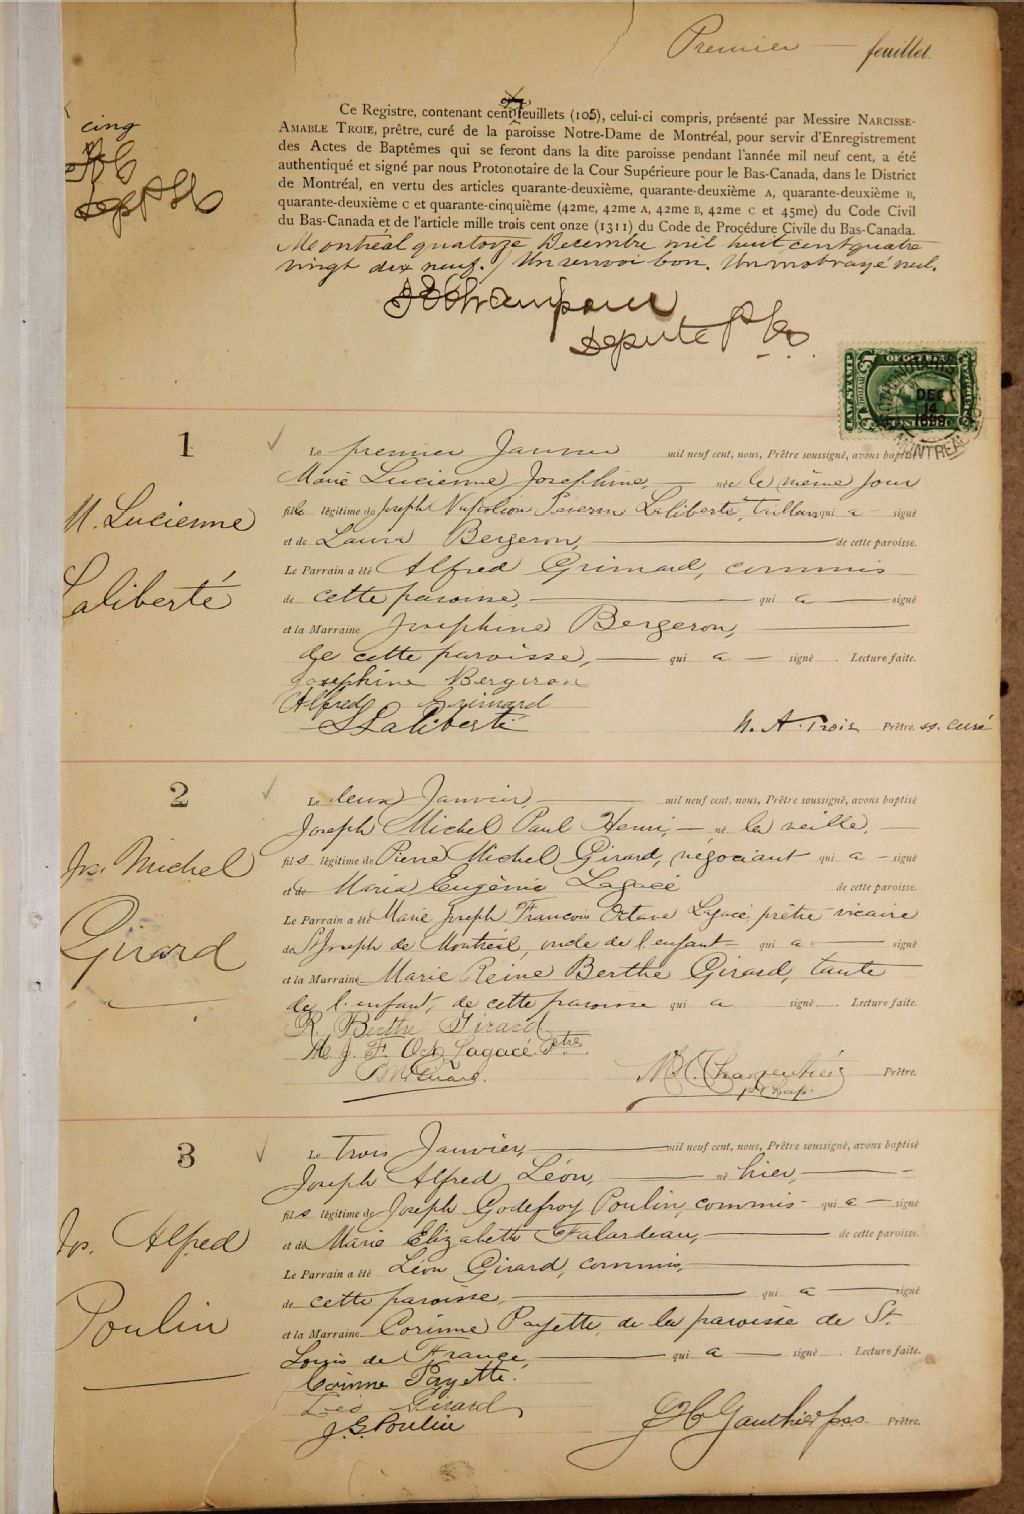 Premier — feuillet.
Ce Registre, contenant cent feuillets (105), celui-ci compris, présenté par Messire NARCISSE-
AMABLE TROIE, prêtre, curé de la paroisse Notre-Dame de Montréal, pour servir d'Enregistrement
des Actes de Baptêmes qui se feront dans la dite paroisse pendant l'année mil neuf cent, a été
authentiqué et signé par nous Protonotaire de la Cour Supérieure pour le Bas-Canada, dans le District
de Montréal, en vertu des articles quarante-deuxième, quarante-deuxième A, quarante-deuxième B,
quarante-deuxième C et quarante-cinquième (42me, 42me A, 42me B, 42me C et 45me) du Code Civil
du Bas-Canada et de l'article mille trois cent onze (1311) du Code de Procédure Civile du Bas-Canada.
cinq
Dept P
Montréal quatorze Decembre mil huit cent quatre
vingt dix neuf. / Un renvoi bon. Un mot rayé nul.
Champoux
Depute P
LAW STAMP
DEC
14
1899
MONTREAL
1
M. Lucienne
Laliberté
Le premier Janvier mil neuf cent, nous, Prêtre soussigné, avons baptisé
Marie Lucienne Josephine, — née le même jour
fille légitime de Joseph Napoléon Séverin Laliberté, tailleur qui a — signé
et de Laura Bergeron, — de cette paroisse.
Le Parrain a été Alfred Grimard, commis
de cette paroisse, — qui a — signé
et la Marraine Josephine Bergeron, —
de cette paroisse, — qui a — signé. Lecture faite.
Josephine Bergeron
Alfred Grimard
S Laliberté
N. A. Troie, Prêtre ss. curé
2
Jos. Michel
Girard
Le deux Janvier, — mil neuf cent, nous, Prêtre soussigné, avons baptisé
Joseph Michel Paul Henri, — né la veille, —
fils légitime de Pierre Michel Girard, négociant qui a — signé
et de Maria Eugénie Lagacé de cette paroisse.
Le Parrain a été Marie Joseph François Octave Lagacé, prêtre vicaire
de St Joseph de Montréal, oncle de l'enfant — qui a — signé
et la Marraine Marie Reine Berthe Girard, tante
de l'enfant, de cette paroisse qui a — signé. Lecture faite.
R. Berthe Girard
M. J. F. Oct. Lagacé Ptre
P M Girard.
M. C. Charpentier Prêtre.
3
Jos. Alfred
Poulin
Le trois Janvier, — mil neuf cent, nous, Prêtre soussigné, avons baptisé
Joseph Alfred Léon, — né hier, —
fils légitime de Joseph Godefroy Poulin, commis — qui a — signé
et de Marie Elizabeth Falardeau, — de cette paroisse.
Le Parrain a été Léon Girard, commis, —
de cette paroisse, — qui a — signé
et la Marraine Corinne Payette, de la paroisse de St.
Louis de France, — qui a — signé. Lecture faite.
Corinne Payette.
Léo Girard
J. G. Poulin
Gauthier pss Prêtre.